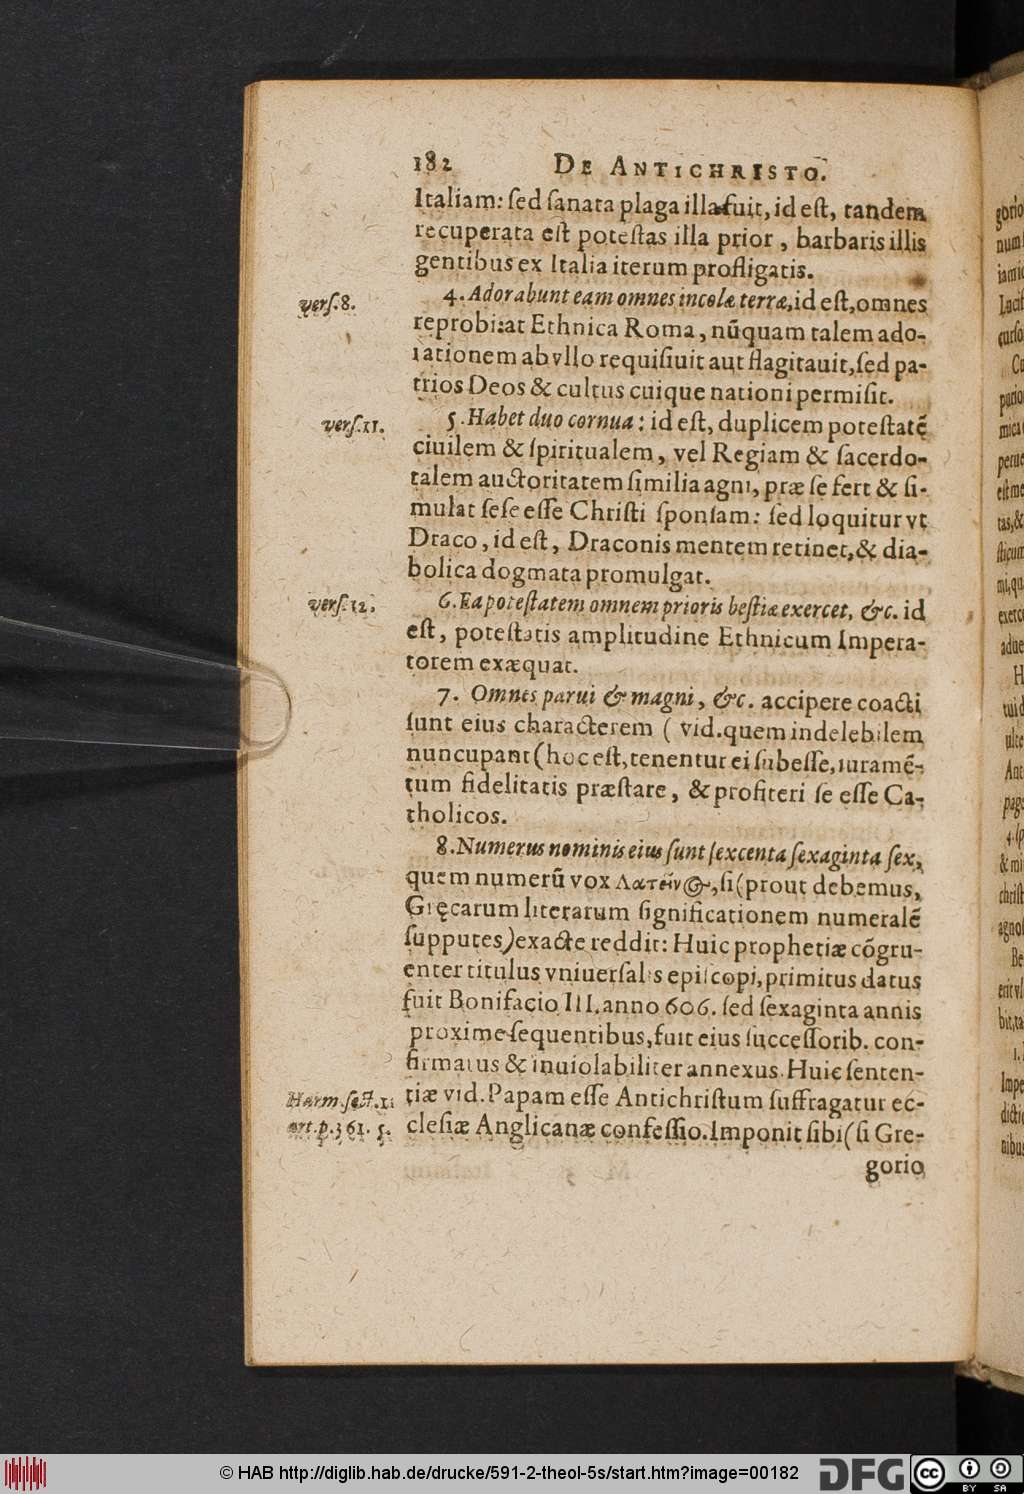 182 DE ANTICHRISTO.
Italiam: ſed ſanata plaga illa fuit, id eſt, tandem
recuperata eſt poteſtas illa prior, barbaris illis
gentibus ex Italia iterum profligatis.
verſ. 8. 4. Adorabunt eam omnes incolæ terræ, id eſt, omnes
reprobi: at Ethnica Roma, nũquam talem ado-
rationem ab vllo requiſiuit aut flagitauit, ſed pa-
trios Deos & cultus cuique nationi permiſit.
verſ. 11. 5. Habet duo cornua: id eſt, duplicem poteſtatẽ
ciuilem & ſpiritualem, vel Regiam & ſacerdo-
talem auctoritatem ſimilia agni, præ ſe fert & ſi-
mulat ſeſe eſſe Chriſti ſponſam: ſed loquitur vt
Draco, id eſt, Draconis mentem retinet, & dia-
bolica dogmata promulgat.
verſ. 12. 6. Ea poteſtatem omnem prioris beſtiæ exercet, &c. id
eſt, poteſtatis amplitudine Ethnicum Impera-
torem exæquat.
7. Omnes parui & magni, &c. accipere coacti
ſunt eius characterem ( vid. quem indelebilem
nuncupant (hoc eſt, tenentur ei ſubeſſe, iuramẽ-
tum fidelitatis præſtare, & profiteri ſe eſſe Ca-
tholicos.
8. Numerus nominis eius ſunt ſexcenta ſexaginta ſex,
quem numerũ vox Λατεῖνος, ſi (prout debemus,
Gręcarum literarum ſignificationem numeralẽ
ſupputes) exacte reddit: Huic prophetiæ cõgru-
enter titulus vniuerſalis epiſcopi, primitus datus
fuit Bonifacio III. anno 606. ſed ſexaginta annis
proxime ſequentibus, fuit eius ſucceſſorib. con-
firmatus & inuiolabiliter annexus. Huic ſenten-
Harm. ſect. 1. tiæ vid. Papam eſſe Antichriſtum ſuffragatur ec-
art. p. 361. 5. cleſiæ Anglicanæ confeſſio. Imponit ſibi (ſi Gre-
gorio
© HAB http://diglib.hab.de/drucke/591-2-theol-5s/start.htm?image=00182
DFG
cc BY SA